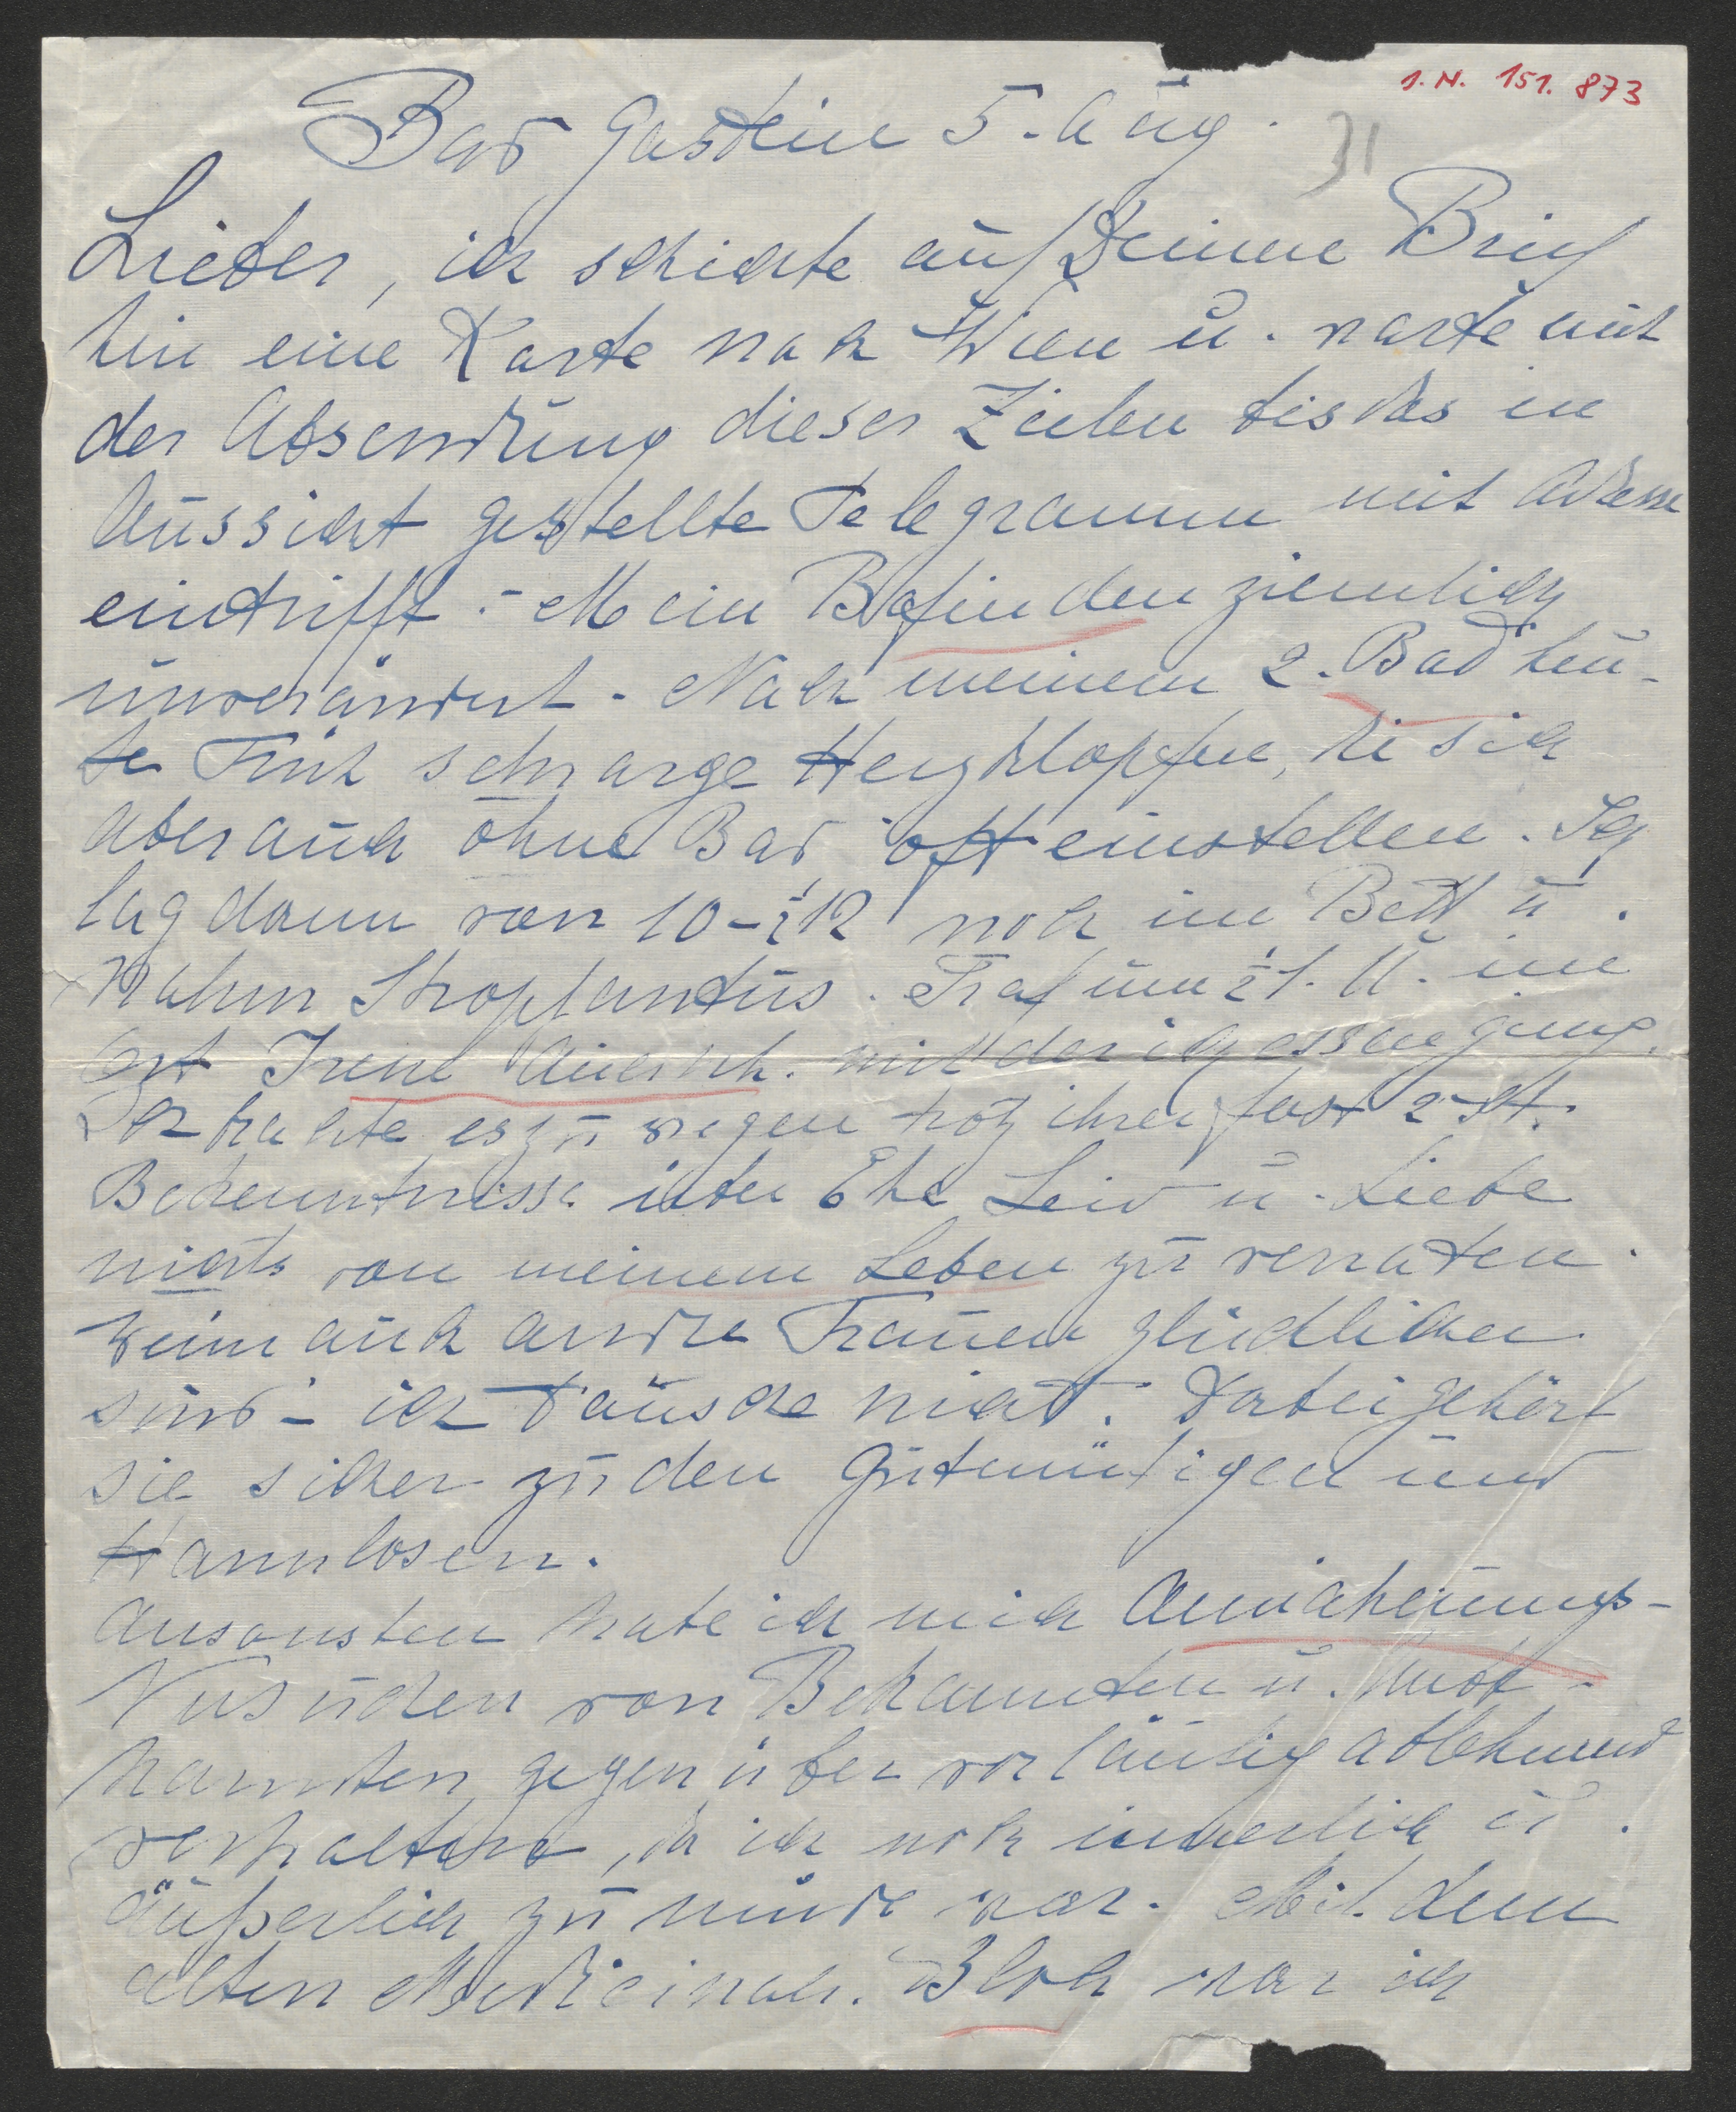 I. N. 151.873
Bad Gastein 5. Aug.
31
Lieber, ich schickte auf Deinen Brief
hin eine Karte nach Wien u. warte mit
der Absendung dieser Zeilen bis das in
Aussicht gestellte Telegramm mit Adresse
eintrifft. – Mein Befinden ziemlich
unverändert. Nach meinem 2. Bad heu-
te Früh sehr arge Herzklopfen, die sich
aber auch ohne Bad oft einstellen. Ich
lag dann von 10–½12 noch im Bett u.
nahm Strophantus. Traf um ½1 U. im
Ort Irene mit der ich essen ging.
Ich brachte es zu wegen trotz ihrer fast 2 st.
Bekenntnisse über Ehe Leid u. Liebe
nichts von meinem Leben zu verraten.
Wenn auch andre Frauen glücklicher
sind – ich tausche nicht. Dabei gehört
sie sicher zu den Gutmütigen und
Harmlosen.
Ansonsten habe ich mich Annäherungs-
Versuchen von Bekannten u. Unbe-
kannten gegenüber vorläufig ablehnend
verhaltend, da ich noch innerlich u.
äußerlich zu müde war. Mit dem
alten Medicinalr. Bloch war ich